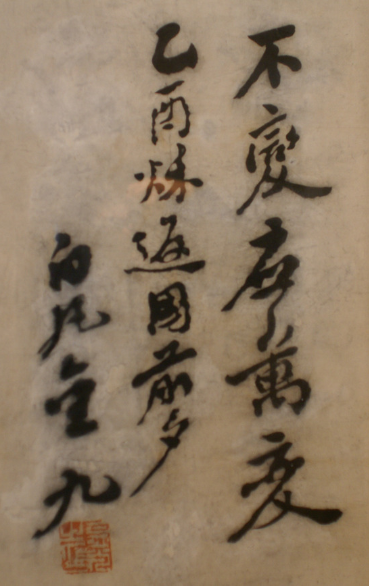 不變應萬變
乙酉秋返國前夕
白凡金九